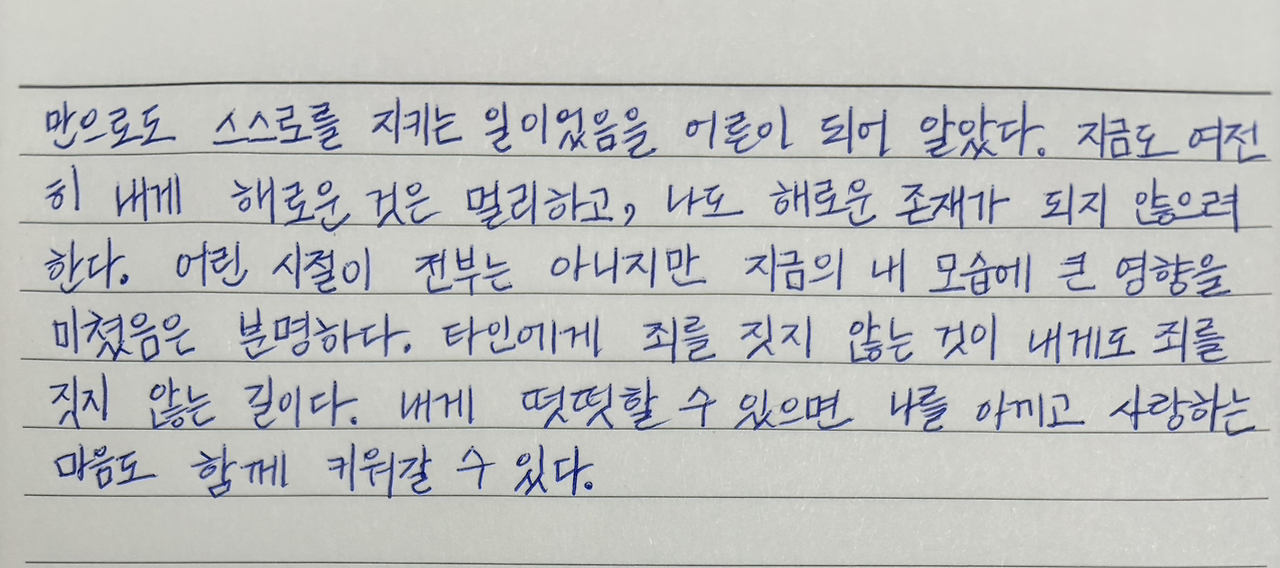 만으로도 스스로를 지키는 일이었음을 어른이 되어 알았다. 지금도 여전
히 내게 해로운 것은 멀리하고, 나도 해로운 존재가 되지 않으려
한다. 어린 시절이 전부는 아니지만 지금의 내 모습에 큰 영향을
미쳤음은 분명하다. 타인에게 죄를 짓지 않는 것이 내게도 죄를
짓지 않는 길이다. 내게 떳떳할 수 있으면 나를 아끼고 사랑하는
마음도 함께 키워갈 수 있다.